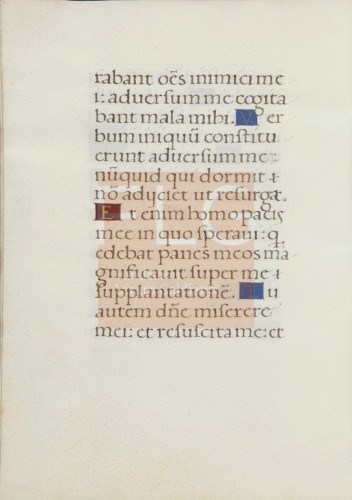 rabant oẽs inimici me
i: adversum me cogita
bant mala mihi. Ver
bum iniquũ constitu
erunt adversum me:
nũquid qui dormit
nõ adyciet ut resurgat.
Etenim homo pacis
mee in quo speravi: q
edebat panes meos ma
gnificavit super me
supplantationẽ. Tu
autem dñe miserere
mei: et resuscita me: et